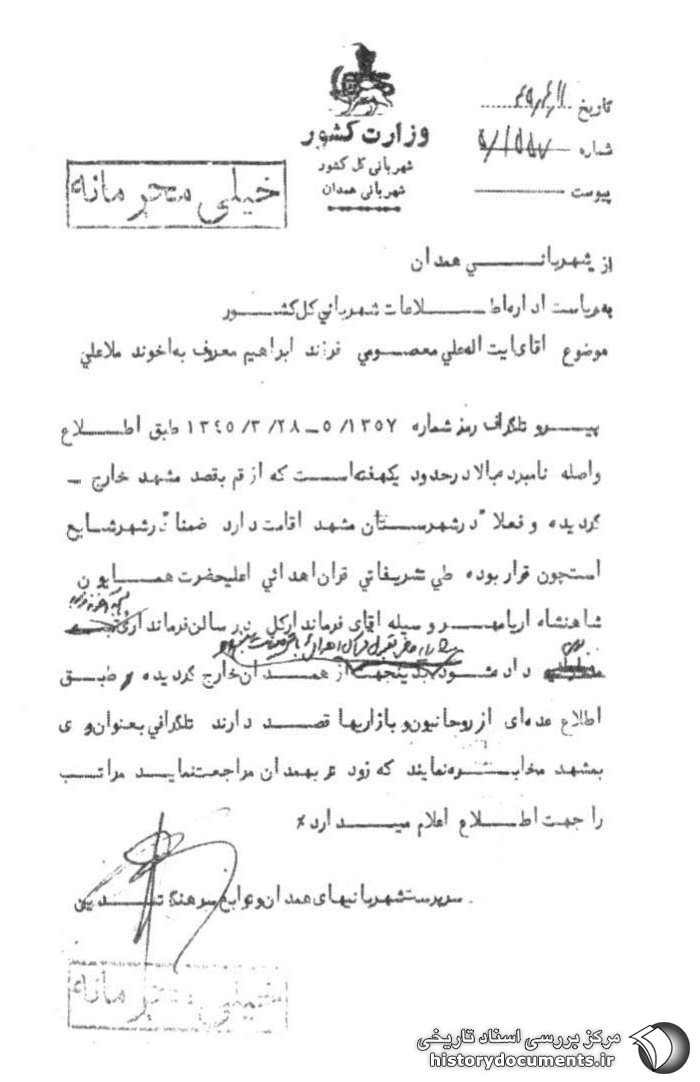 تاریخ
وزارت کشور
شماره ۵/۱۵۵۷
شهربانی کل کشور
پیوست
شهربانی همدان
خیلی محرمانه
از شهربانـــی همدان
به ریاست اداره اطـــلاعات شهربانی کل کشـــور
موضوع آقای ایت اله علی معصـومی فرزند ابراهیم معروف به اخوند ملاعلی
پیـــرو تلگراف رمز شماره ۵/۱۳۵۷ – ۱۳۴۵/۳/۲۸ طبق اطـــلاع
واصله نامبرده بالا در حدود یکهفته است که از قم بقصد مشهد خارج –
گردیده و فعلا" در شهرستان مشهد اقامت دارد ضمنا" در شهر شایع
است چون قرار بوده طی تشریفاتی قران اهدائی اعلیحضرت همـایون
شاهنشاه اریامهـــر وسیله اقای فرماندار کل در سالن فرمانداری
داده شود بدینجهت از همـدان خارج گردیده و طبـق
اطلاع عده‌ای از روحانیون و بازاریها قصـد دارند تلگرافی بعنوان وی
بمشهد مخابـــره نمایند که زودتر بهمدان مراجعت نمایـد مراتـب
را جهت اطـــلاع اعلام میـــدارد٪
سرپرست شهربانیهای همدان و توابع سرهنگ تـــدین
خیلی محرمانه
مرکز بررسی اسناد تاریخی
historydocuments.ir